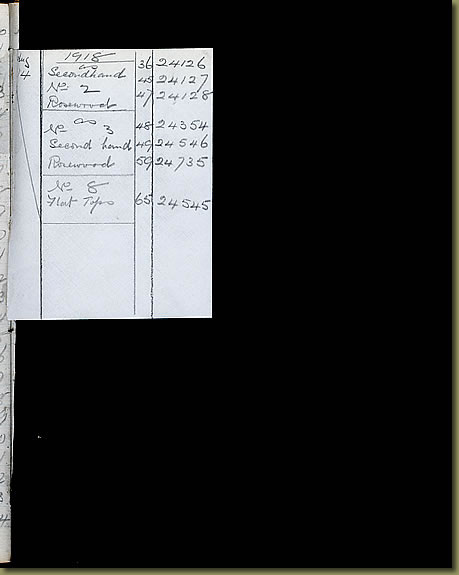 1918
Aug as 36 24126
4 Secondhand 45 24127
No 2 47 24128
Rosewood
as
No 3 48 24354
Second hand 49 24546
Rosewood 59 24735
No 8
Flat Tops 65 24545